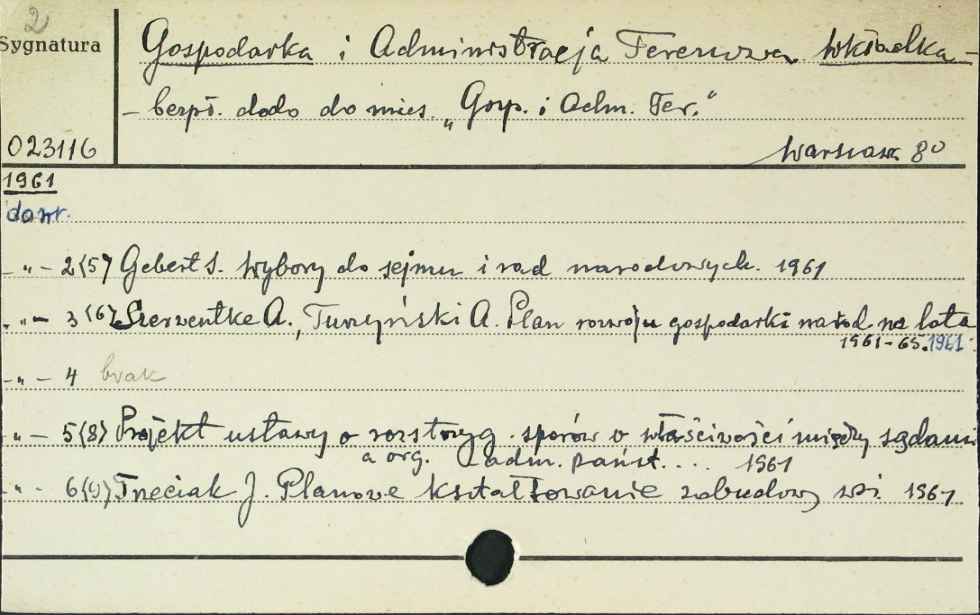 2
Sygnatura
Gospodarka i Administracja Terenowa wkładka
- bezpł. dod. do mies. „Gosp. i Adm. Ter."
023116
Warszawa 8°
1961
dawr.
- „ - 2(5) Gebert S. Wybory do sejmu i rad narodowych. 1961
- „ - 3(6) Szerwentke A., Turzyński A. Plan rozwoju gospodarki narod. na lata
1961-65. 1961
- „ - 4 brak
- „ - 5(8) Projekt ustawy o rozstrzyg. sporów o właściwości między sądami
a org. adm. państ.... 1961
- „ - 6(9) Trzeciak J. Planowe kształtowanie zabudowy wsi. 1961